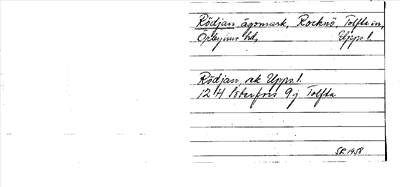 Rödjan ägomark, Rocknö, Tolfta sn,
Örbyhus hd, Upps. l.
Rödjan, ek Upps. l.
12 H Söderfors 9 j Tolfta
SR 1958